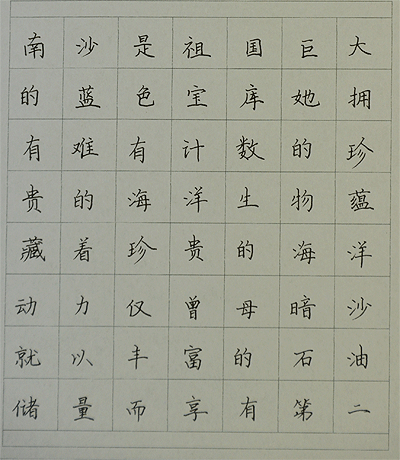 南沙是祖国巨大
的蓝色宝库她拥
有难有计数的珍
贵的海洋生物蕴
藏着珍贵的海洋
动力仅曾母暗沙
就以丰富的石油
储量而享有第二